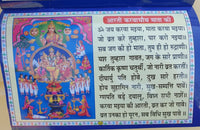 आरती करवाचौथ माता की
ॐ जय करवा मइया, माता जय करवा मइया।
जो व्रत करे तुम्हारा, पार करो नइया।
सब जग की हो माता, तुम हो रुद्राणी।
यश तुम्हारा गावत, जग के सब प्राणी।
कार्तिक कृष्ण चतुर्थी, जो नारी व्रत करती।
दीर्घायु पति होवे, दुख सारे हरती।
होय सुहागिन नारी, सुख
गणपति जी बड़े दयालु, विघ्न सभी
करवा मइया की आरती, व्रत कर जो गावे।
व्रत हो जाता पूरन, सब विधि सुख पावे।